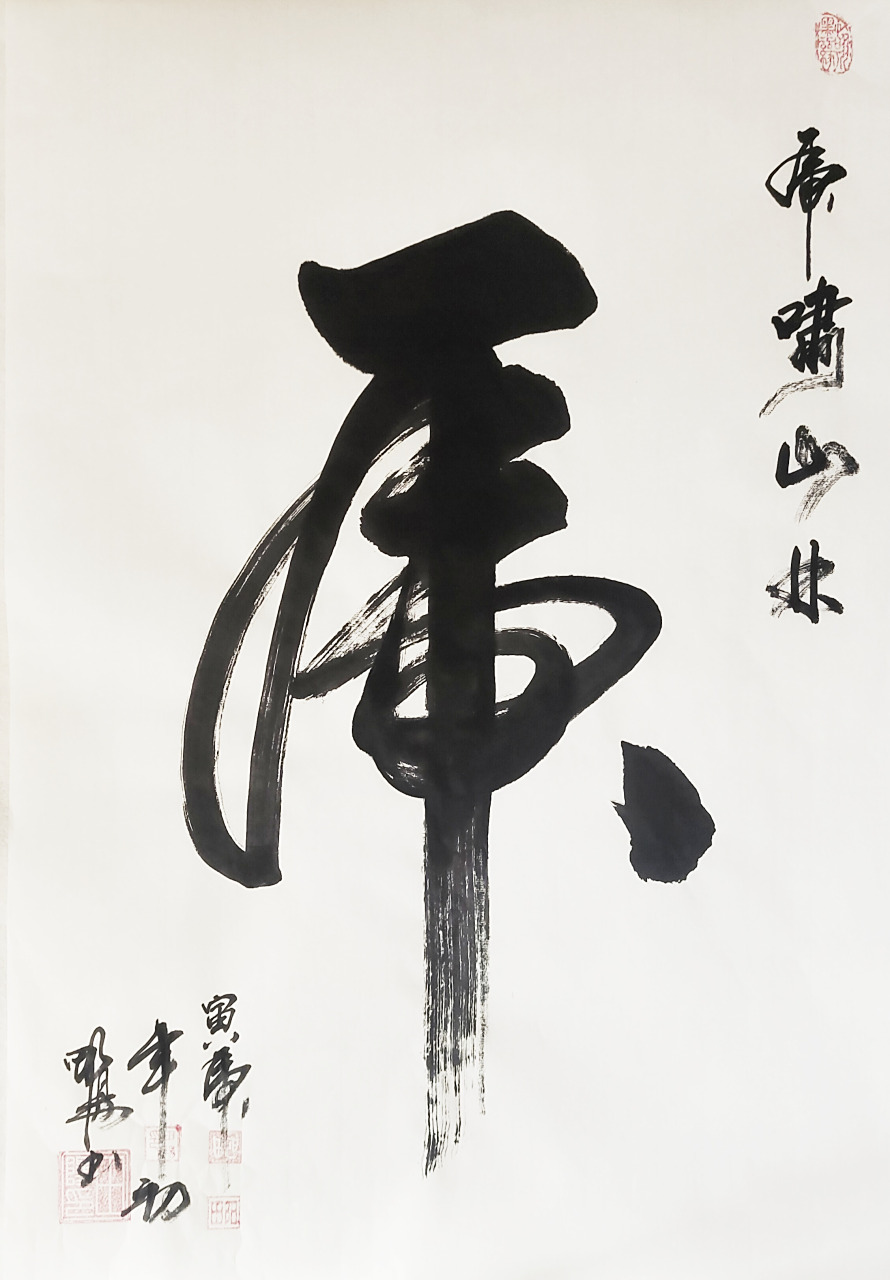 虎啸山林
虎
寅虎
年初
书